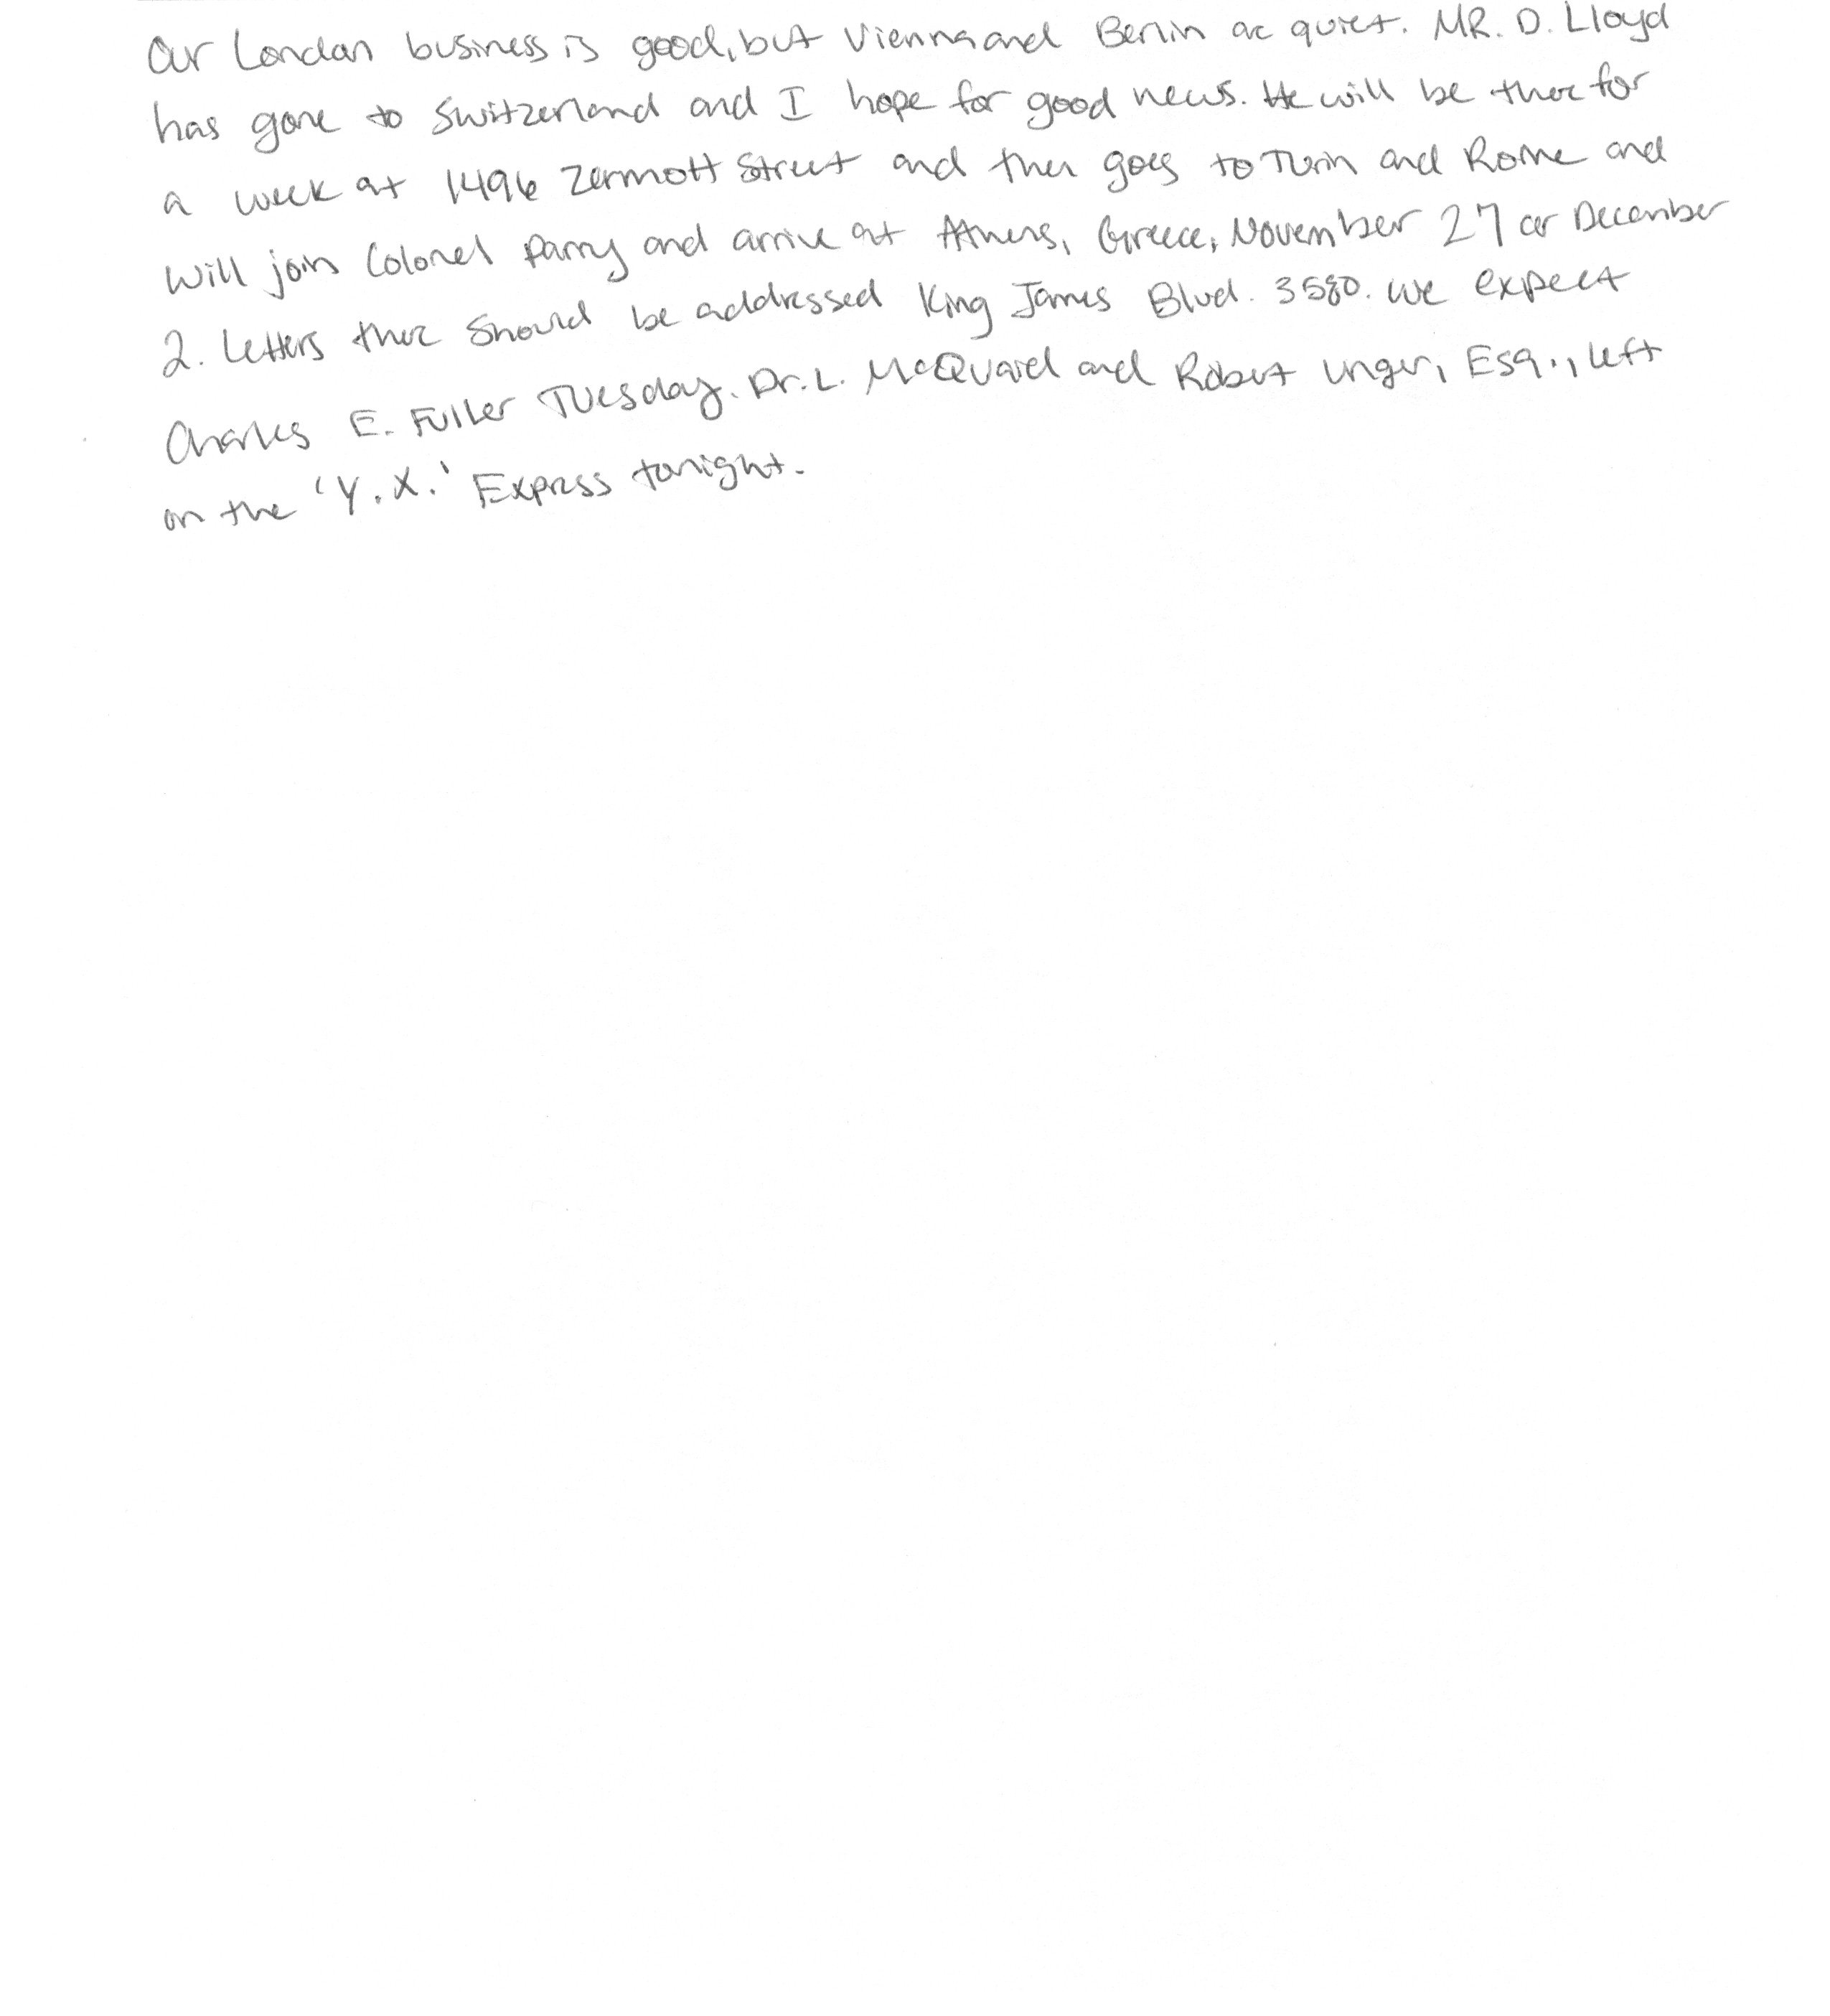 Our London business is good, but Vienna and Berlin are quiet. MR. D. Lloyd
has gone to Switzerland and I hope for good news. He will be there for
a week at 1496 Zermott Street and then goes to Turin and Rome and
will join Colonel Parry and arrive at Athens, Greece, November 27 or December
2. Letters there should be addressed King James Blvd. 3580. We expect
Charles E. Fuller Tuesday. Dr. L. McQuaid and Robert Unger, Esq., left
on the 'Y.X.' Express tonight.